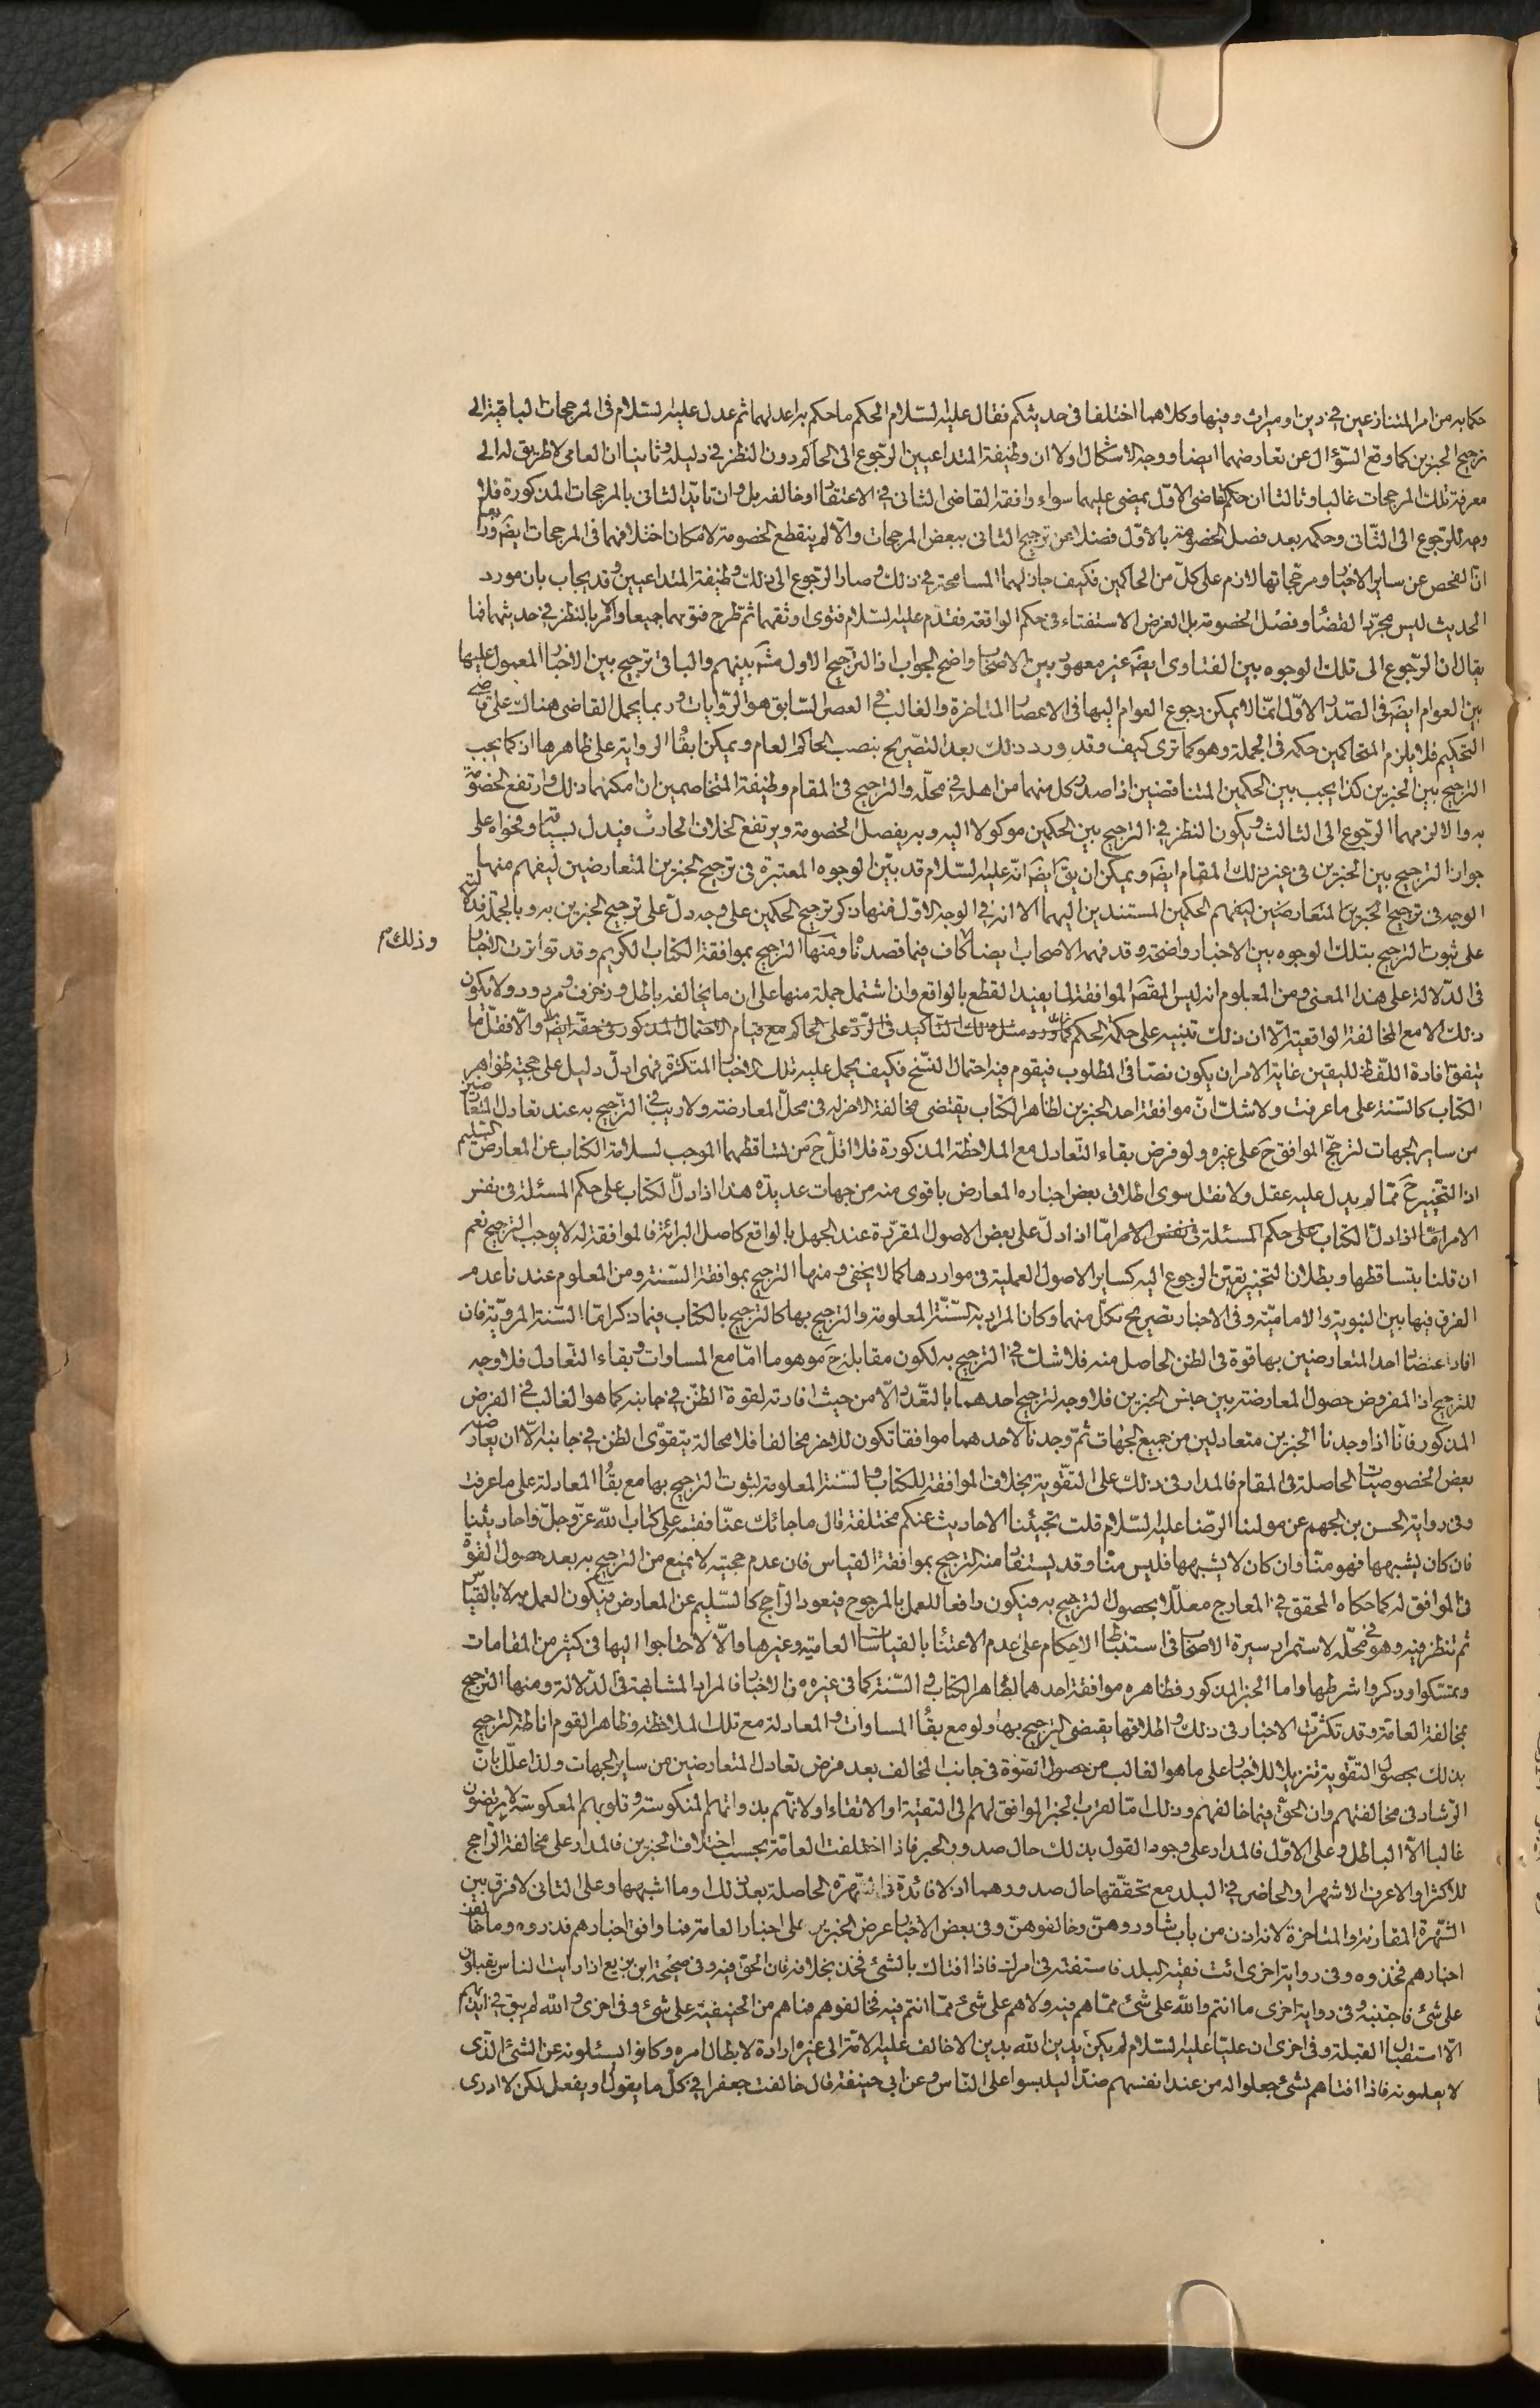 حكما به من امر المتنازعين في دين او ميراث وفيها وكلاهما اختلفا في حديثكم فقال عليه السّلام الحكم ما حكم به اعدلهما ثم عدل عليه السّلام في المرجحات الباقية الى
ترجيح الخبرين كما وقع السّؤال عن تعارضهما ايضا ووجه الاشكال اولا ان وظيفة المتداعيين الرّجوع الى الحاكم دون النظر في دليله وثانيا ان العامي لا طريق له الى
معرفة تلك المرجحات غالبا وثالثا ان حكم القاضي الاوّل يمضي عليهما سواء وافقه القاضي الثاني في الاعتقاد او خالفه بل وان تايّد الثاني بالمرجحات المذكورة فلا
وجه للرّجوع الى الثّاني وحكمه بعد فصل الخصومة بالاوّل فضلا عن ترجيح الثاني ببعض المرجحات والّا لم ينقطع الخصومة لامكان اختلافهما في المرجحات ايضَ ورابعا
انّ الفحص عن ساير الاخبار ومرجّحاتها لازم على كلّ من الحاكمين فكيف جاز لهما المسامحة في ذلك وصار الرّجوع الى ذلك وظيفة المتداعيين وقد يجاب بان مورد
الحديث ليس مجرّد القضاء وفصل الخصومة بل الغرض الاستفتاء في حكم الواقعة فقدّم عليه السّلام فتوى اوثقهما ثم طرح فتويهما جميعا والامر بالنظر في حديثهما فما
يقال ان الرّجوع الى تلك الوجوه بين الفتاوى ايضَ غير معهود بين الاصحاب واضح الجواب اذ الترّجيح الاول مشترك بينهم والباقي ترجيح بين الاخبار المعمول عليها
بين العوام ايضَ في الصّدر الاوّل انمّا لا يمكن رجوع العوام اليها في الاعصار المتاخرة والغالب في العصر السّابق هو الرّوايات وربما يحمل القاضي هناك على قاضي
التحكيم فلا يلزم المتحاكمين حكمه في الجملة وهو كما ترى كيف وقد ورد ذلك بعد التصّريح بنصب الحاكم العام ويمكن ابقاء الرواية على ظاهرها ان كما يجب
الترجيح بين الخبرين كذا يجب بين الحكمين المتناقضين اذا صدر كل منهما من اهله في محلّه والترجيح في المقام وظيفة المتخاصمين ان امكنهما ذلك وارتفع الخصومة
به والا لزمهما الرّجوع الى الثالث ويكون النظر في الترجيح بين الحكمين موكولا اليه وبه يفصل الخصومة ويرتفع الخلاف الحادث فيدل بسياقه وفحواه على
جواز الترجيح بين الخبرين في غير ذلك المقام ايضَ ويمكن ان يقَ ايضَ انّه عليه السّلام قد بيّن الوجوه المعتبرة في ترجيح الخبرين المتعارضين ليفهم منها
الوجه في ترجيح الخبرين المتعارضين ليفهم الحكمين المستندين اليهما الا انه في الوجه الاوّل منها ذكر ترجيح الحكمين على وجه دلّ على ترجيح الخبرين به وبالجملة فدلالته
على ثبوت الترجيح بتلك الوجوه بين الاخبار واضحة وقد فهمه الاصحاب ايضا وذلك كاف فيما قصدناه ومنها الترجيح بموافقة الكتاب الكريم وقد تواترت الاخبار
في الدّلالة على هذا المعنى ومن المعلوم انه ليس المقصَ الموافقة لما يفيد القطع بالواقع وان اشتمل جملة منها على ان ما يخالفه باطل وزخرف ومردود ولا يكون
ذلك الا مع المخالفة الواقعيّة الّا ان ذلك تنبيه على حكمة الحكم كما ورد مثل ذلك التّاكيد في الرّد على الحاكم مع قيام الاحتمال المذكور في حقّه ايضَ والّا فقلّ ما
يتفق افادة اللّفظ لليقين غاية الامر ان يكون نصّا في المطلوب فيقوم فيه احتمال النّسخ فكيف يحمل عليه تلك الاخبار المتكثرة فهي ادلّ دليل على حجية ظواهر
الكتاب كالسّنة على ما عرفت ولا شك انّ موافقة احد الخبرين لظاهر الكتاب يقتضي مخالفة الاخر له في محلّ المعارضة ولا ريب في الترّجيح به عند تعادل المتعارضين
من ساير الجهات لترجّح الموافق حَ على غيره ولو فرض بقاء التّعادل مع الملاحظة المذكورة فلا اقلّ حَ من تساقطهما الموجب لسلامة الكتاب عن المعارض السّليم
اذ التّخيير حَ ممّا لم يدل عليه عقل ولا نقل سوى اطلاق بعض اخباره المعارض باقوى منه من جهات عديدة هذا اذا دلّ الكتاب على حكم المسئلة في نفس
الامر امّا اذا دلّ الكتاب على حكم المسئلة في نفس الامر امّا اذا دلّ على بعض الاصول المقرّرة عند الجهل بالواقع كاصل البرائة فالموافقة له لا يوجب الترجيح نعم
ان قلنا بتساقطها وبطلان التّخيير تعيّن الرجوع اليه كساير الاصول العملية في مواردها كما لا يخفى ومنها الترجيح بموافقة السّنة ومن المعلوم عندنا عدم
الفرق فيها بين النبوية والاماميّة وفي الاخبار تصريح بكلّ منهما وكان المراد به السّنّة المعلومة والترجيح بها كالترجيح بالكتاب فيما ذكر امّا السّنة المرويّة فان
افاد اعتضاد احد المتعارضين بها قوة في الظن الحاصل منه فلا شك في الترجيح به لكون مقابله حَ موهوما امّا مع المساوات وبقاء التّعادل فلا وجه
للترجيح اذ المفروض حصول المعارضة بين جنس الخبرين فلا وجه لترجيح احدهما بالتعّدد الّا من حيث افادته لقوة الظنّ في جانبه كما هو الغالب في الفرض
المذكور فانّا اذا وجدنا الخبرين متعادلين من جميع الجهات ثمّ وجدنا لاحدهما موافقا تكون للاخر مخالفا فلا محالة يتقوّى الظن في جانبه الّا ان يعارضه
بعض الخصوصيات الحاصلة في المقام فالمدار في ذلك على التقّوية بخلاف الموافقة للكتاب والسّنة المعلومة لثبوت الترجيح بها مع بقاء المعادلة على ما عرفت
وفي رواية الحسن بن الجهم عن مولينا الرّضا عليه السّلام قلت تجيئنا الاحاديث عنكم مختلفة قال ما جائك عنّا فقسه على كتاب اللّه عزّوجلّ واحاديثنا
فان كان يشبهها فهو منّا وان كان لا يشبهها فليس منّا وقد يستفاد منه الترجيح بموافقة القياس فان عدم حجيته لا يمنع من الترجيح به بعد حصول القوّة
في الموافق له كما حكاه المحقق في المعارج معلّلا بحصول الترجيح به فيكون دافعا للعمل بالمرجوح فيعود الرّاجح كالسّليم عن المعارض فيكون العمل به لا بالقياس
ثم تنظر فيه وهو في محلّه لاستمرار سيرة الاصحاب في استنباط الاحكام على عدم الاعتناء بالقياسات العاميّه وغيرها والّا لاحتاجوا اليها في كثير من المقامات
وتمسّكوا وذكروا شرطها واما الخبر المذكور فظاهره موافقة احدهما لظاهر الكتاب والسّنة كما في غيره من الاخبار فالمراد المشابهة في الدّلالة ومنها الترجيح
بمخالفة العامّة وقد تكثرت الاخبار في ذلك واطلاقها يقتضي الترجيح بها ولو مع بقاء المساوات والمعادلة مع تلك الملاحظة وظاهر القوم اناطة الترجيح
بذلك بحصول التقّوية تنزيلا للاخبار على ما هو الغالب من حصول القوة في جانب المخالف بعد فرض تعادل المتعارضين من ساير الجهات ولذا علّل بانّ
الرّشاد في مخالفتهم وان الحق فيما خالفهم وذلك امّا لقرب الخبر الموافق لهم الى التقيّة او الاتقاء او لانّهم بذواتهم المنكوسة وقلوبهم المعكوسة لا يرتضون
غالبا الّا الباطل وعلى الاوّل فالمدار على وجود القول بذلك حال صدور الخبر فاذا اختلفت العامّة بحسب اختلاف الخبرين فالمدار على مخالفة الرّاجح
للاكثر او الاعرف الاشهر او الحاضر في البلد مع تحقّقها حال صدورهما اذ لا فائدة في الشّهرة الحاصلة بعد ذلك وما اشبهها وعلى الثاني لا فرق بين
الشّهرة المقارنة والمتاخرة لانه اذن من باب شاوروهنّ وخالفوهنّ وفي بعض الاخبار عرض الخبرين على اخبار العامة فما وافق اخبارهم فذروه وما خالف
اخبارهم فخذوه وفي رواية اخرى ائت فقيه البلد فاستفته في امرك فاذا افتاك بالشئ فخذ بخلافه فان الحقّ فيه وفي صحيحة ابن بزيع اذا رايت الناس يقبلون
على شئ فاجتنبه وفي رواية اخرى ما انتم واللّه على شئ ممّا هم فيه ولا هم على شئ ممّا انتم فيه فخالفوهم فما هم من الحنيفية على شئ وفي اخرى واللّه لم يبق في ايديهم
الّا استقبال القبلة وفي اخرى ان عليّا عليه السّلام لم يكن يدين اللّه بدين الا خالف عليه الامّة الى غيره ارادة لابطال امره وكانوا يسئلونه عن الشئ الذّي
لا يعلمونه فاذا افتاهم بشئ جعلوا له من عند انفسهم ضدّا ليلبسوا على النّاس وعن ابي حنيفة قال خالفت جعفرا في كلّ ما يقول او يفعل لكن لا ادري